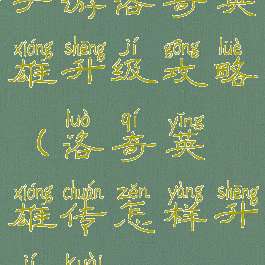 手游洛奇英
xióng shēng jí gōng lüè
雄升级攻略
luò qí yīng
（洛奇英
xióng chuán zěn yàng shēng
雄传怎样升
jí kuài